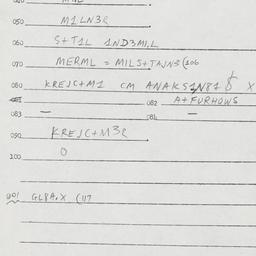 050 M1LN3R
060 S+T1L 1ND3M1L
070 MERML = MILS+TAJNS (106
080 KREJC+M1 CM ANAKS1N81 X
082 A+FURHOWS
083 — 084 —
090 KREJC+M3R
0
100
901 GL8A.X (117